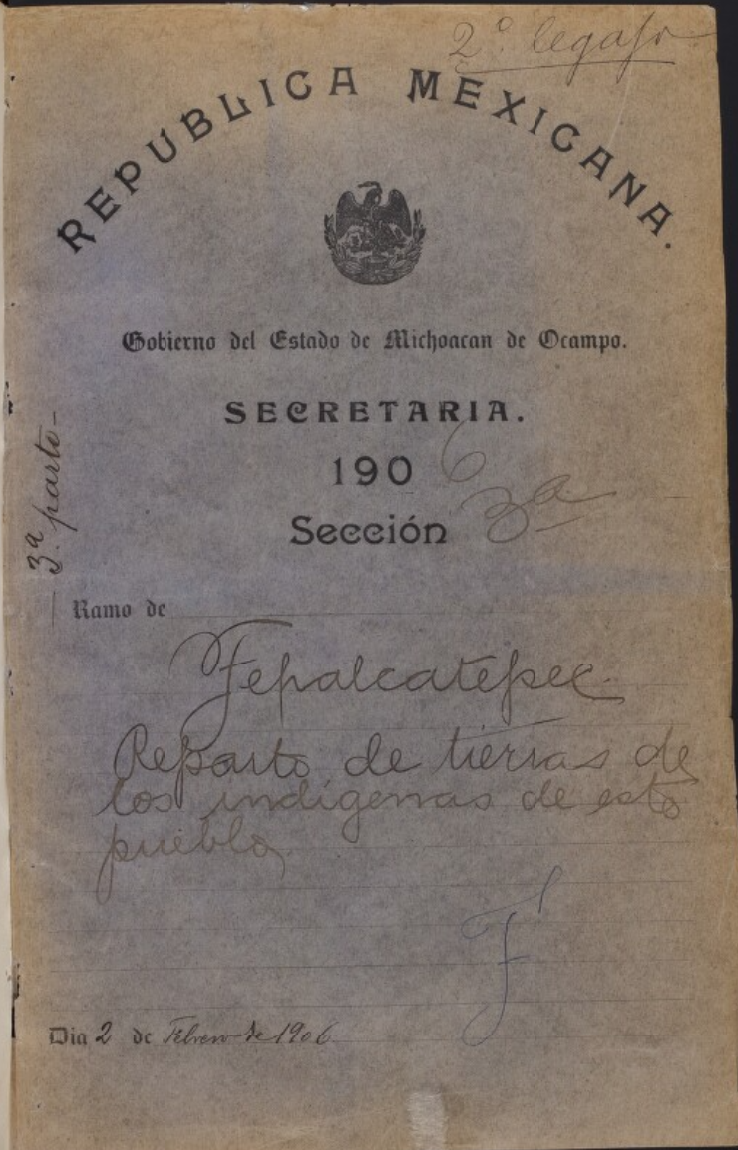 2º legajo
REPUBLICA MEXICANA.
Gobierno del Estado de Michoacan de Ocampo.
SECRETARIA.
1906
Sección 3ª
3ª parte-
Ramo de
Tepalcatepec.
Reparto de tierras de
los indígenas de este
pueblo
Dia 2 de Febrero de 1906